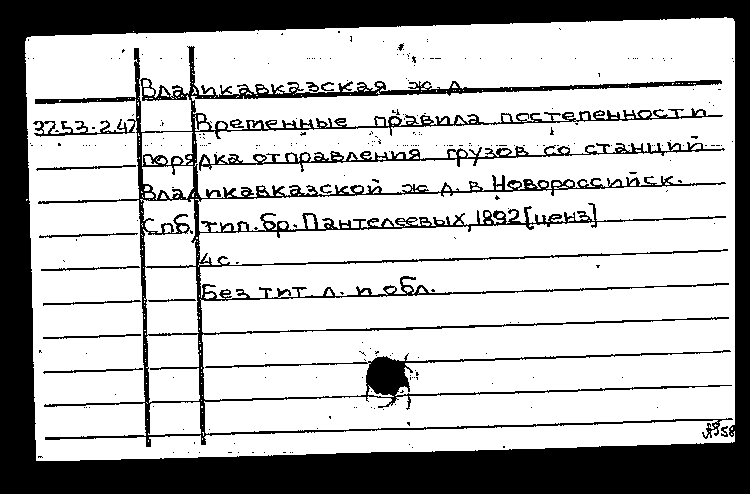 Владикавказская ж. д.
37.53.2.47 Временные правила постепенности
порядка отправления грузов со станций
Владикавказской ж д. в Новороссийск.
Спб, тип. бр. Пантелеевых, 1892 [ценз]
4 с.
Без тит. л. и обл.